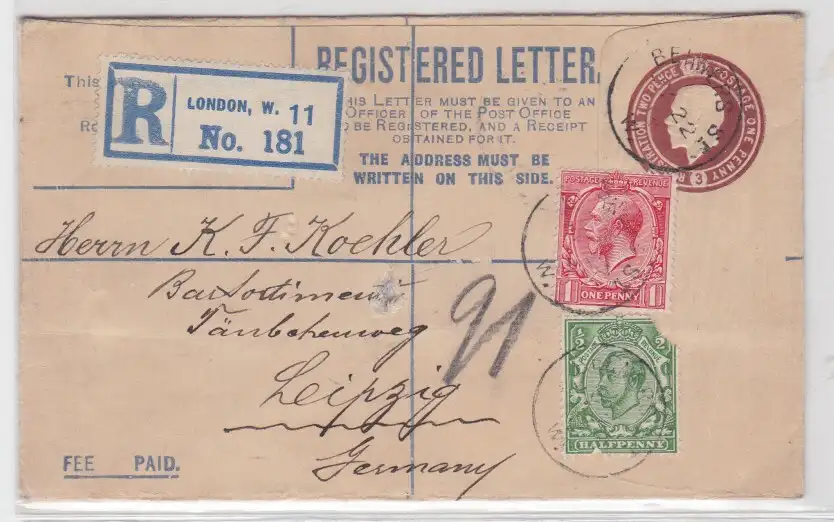 REGISTERED LETTER.
This
R
LONDON, W. 11
No. 181
THIS LETTER MUST BE GIVEN TO AN
OFFICER OF THE POST OFFICE
TO BE REGISTERED, AND A RECEIPT
OBTAINED FOR IT.
THE ADDRESS MUST BE
WRITTEN ON THIS SIDE.
REGISTRATION TWO PENCE POSTAGE ONE PENNY
3
22
W.
POSTAGE REVENUE
1 ONE PENNY 1
W.
Herrn K. F. Koehler
Täubchenweg
Leipzig
Germany
21
POSTAGE REVENUE
HALFPENNY
W.
FEE PAID.